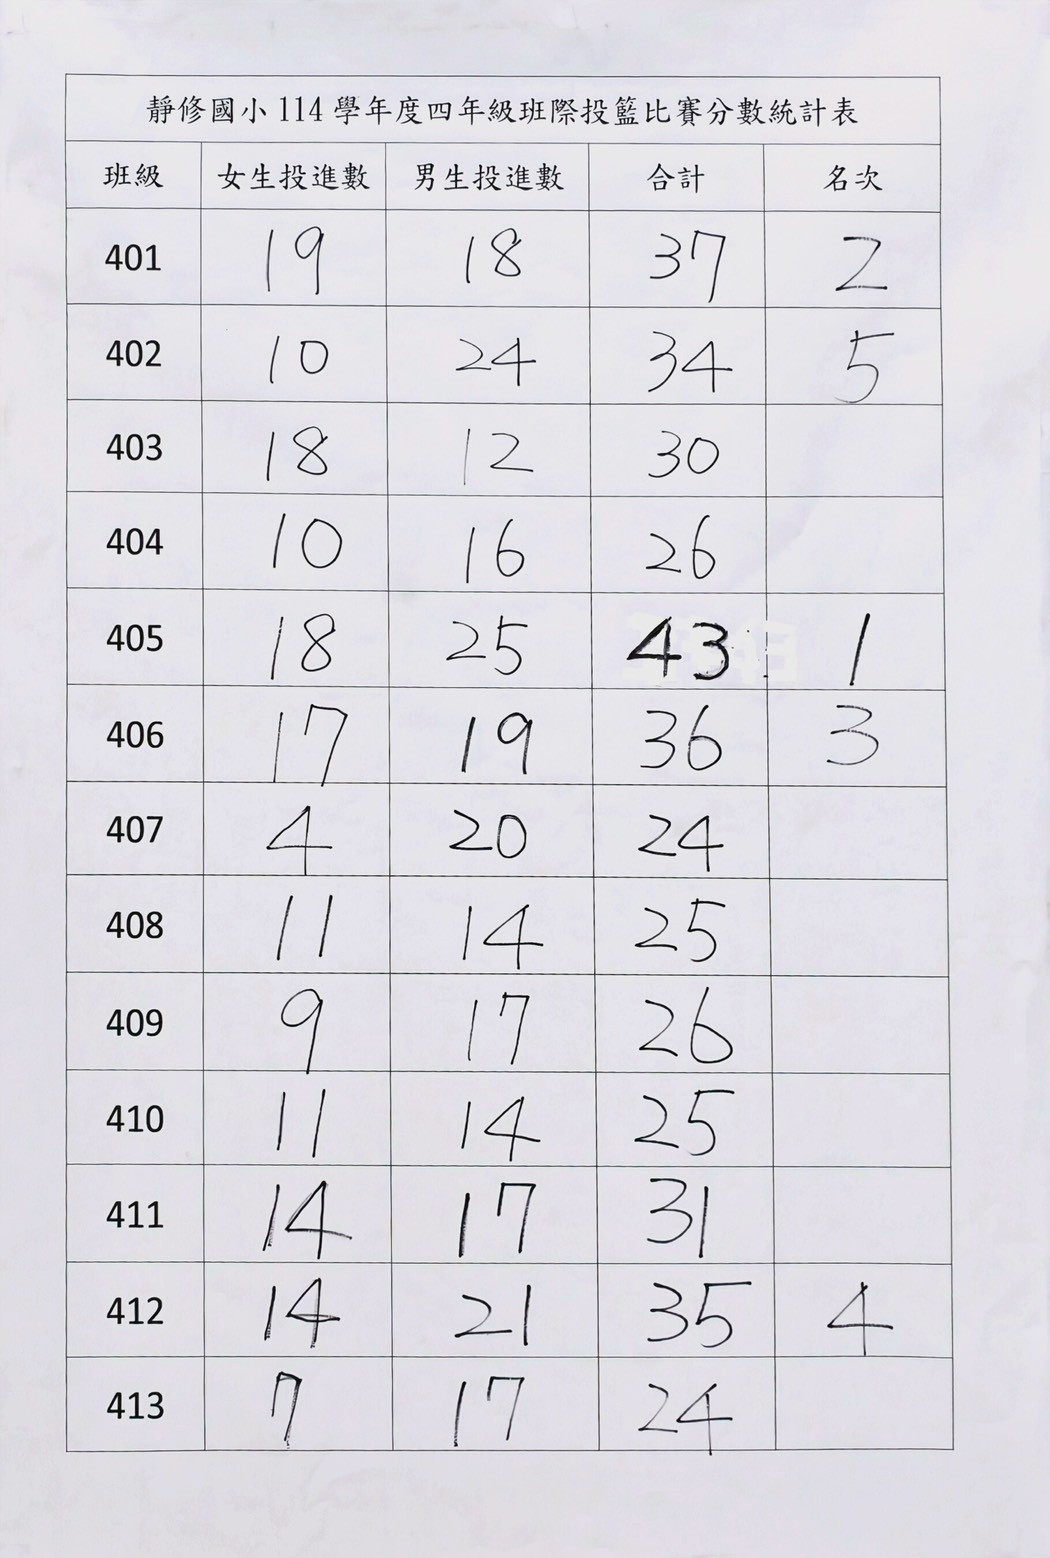 靜修國小 114 學年度四年級班際投籃比賽分數統計表
班級 女生投進數 男生投進數 合計 名次
401 19 18 37 2
402 10 24 34 5
403 18 12 30
404 10 16 26
405 18 25 43 1
406 17 19 36 3
407 4 20 24
408 11 14 25
409 9 17 26
410 11 14 25
411 14 17 31
412 14 21 35 4
413 7 17 24